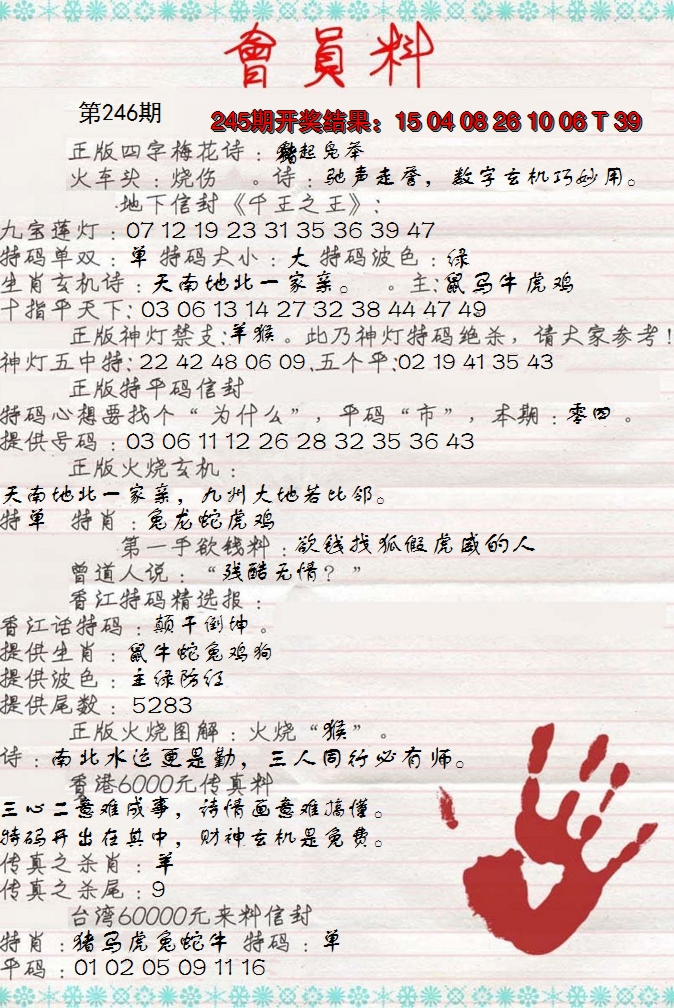 會員料
第246期
245期开奖结果：15 04 08 26 10 06 T 39
正版四字梅花诗：起兔举
火车头：烧伤 。诗：驰声走誉，数字玄机巧妙用。
地下信封《千王之王》：
九宝莲灯：07 12 19 23 31 35 36 39 47
特码单双：单 特码大小：大 特码波色：绿
生肖玄机诗：天南地北一家亲。 。主:鼠马牛虎鸡
十指平天下: 03 06 13 14 27 32 38 44 47 49
正版神灯禁支:羊猴。此乃神灯特码绝杀，请大家参考!
神灯五中特: 22 42 48 06 09.五个平:02 19 41 35 43
正版特平码信封
特码心想要找个“为什么”，平码“市”，本期：零四。
提供号码：03 06 11 12 26 28 32 35 36 43
正版火烧玄机：
天南地北一家亲，九州大地若比邻。
特单 特肖：兔龙蛇虎鸡
第一手欲钱料：欲钱找狐假虎威的人
曾道人说：“残酷无情？”
香江特码精选报：
香江话特码：颠干倒坤。
提供生肖：鼠牛蛇兔鸡狗
提供波色：主绿防红
提供尾数：5283
正版火烧图解：火烧“猴”。
诗：南北水运更是勤，三人同行必有师。
香港6000元传真料
三心二意难成事，诗情画意难搞懂。
特码开出在其中，财神玄机是免费。
传真之杀肖：羊
传真之杀尾：9
台湾60000元来料信封
特肖：猪马虎兔蛇牛 特码：单
平码：01 02 05 09 11 16